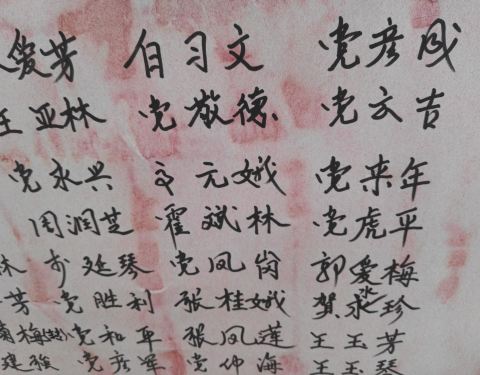 爱芳 白习文 党彦成
王亚林 党敬德 党文吉
党永兴 元娥 党来年
周润芝 霍斌林 党虎平
林 廷琴 党凤岗 郭爱梅
芳 党胜利 张桂娥 贺永珍
菊梅 党和平 张凤莲 王玉芳
建雄 党彦军 党仲海 王玉琴